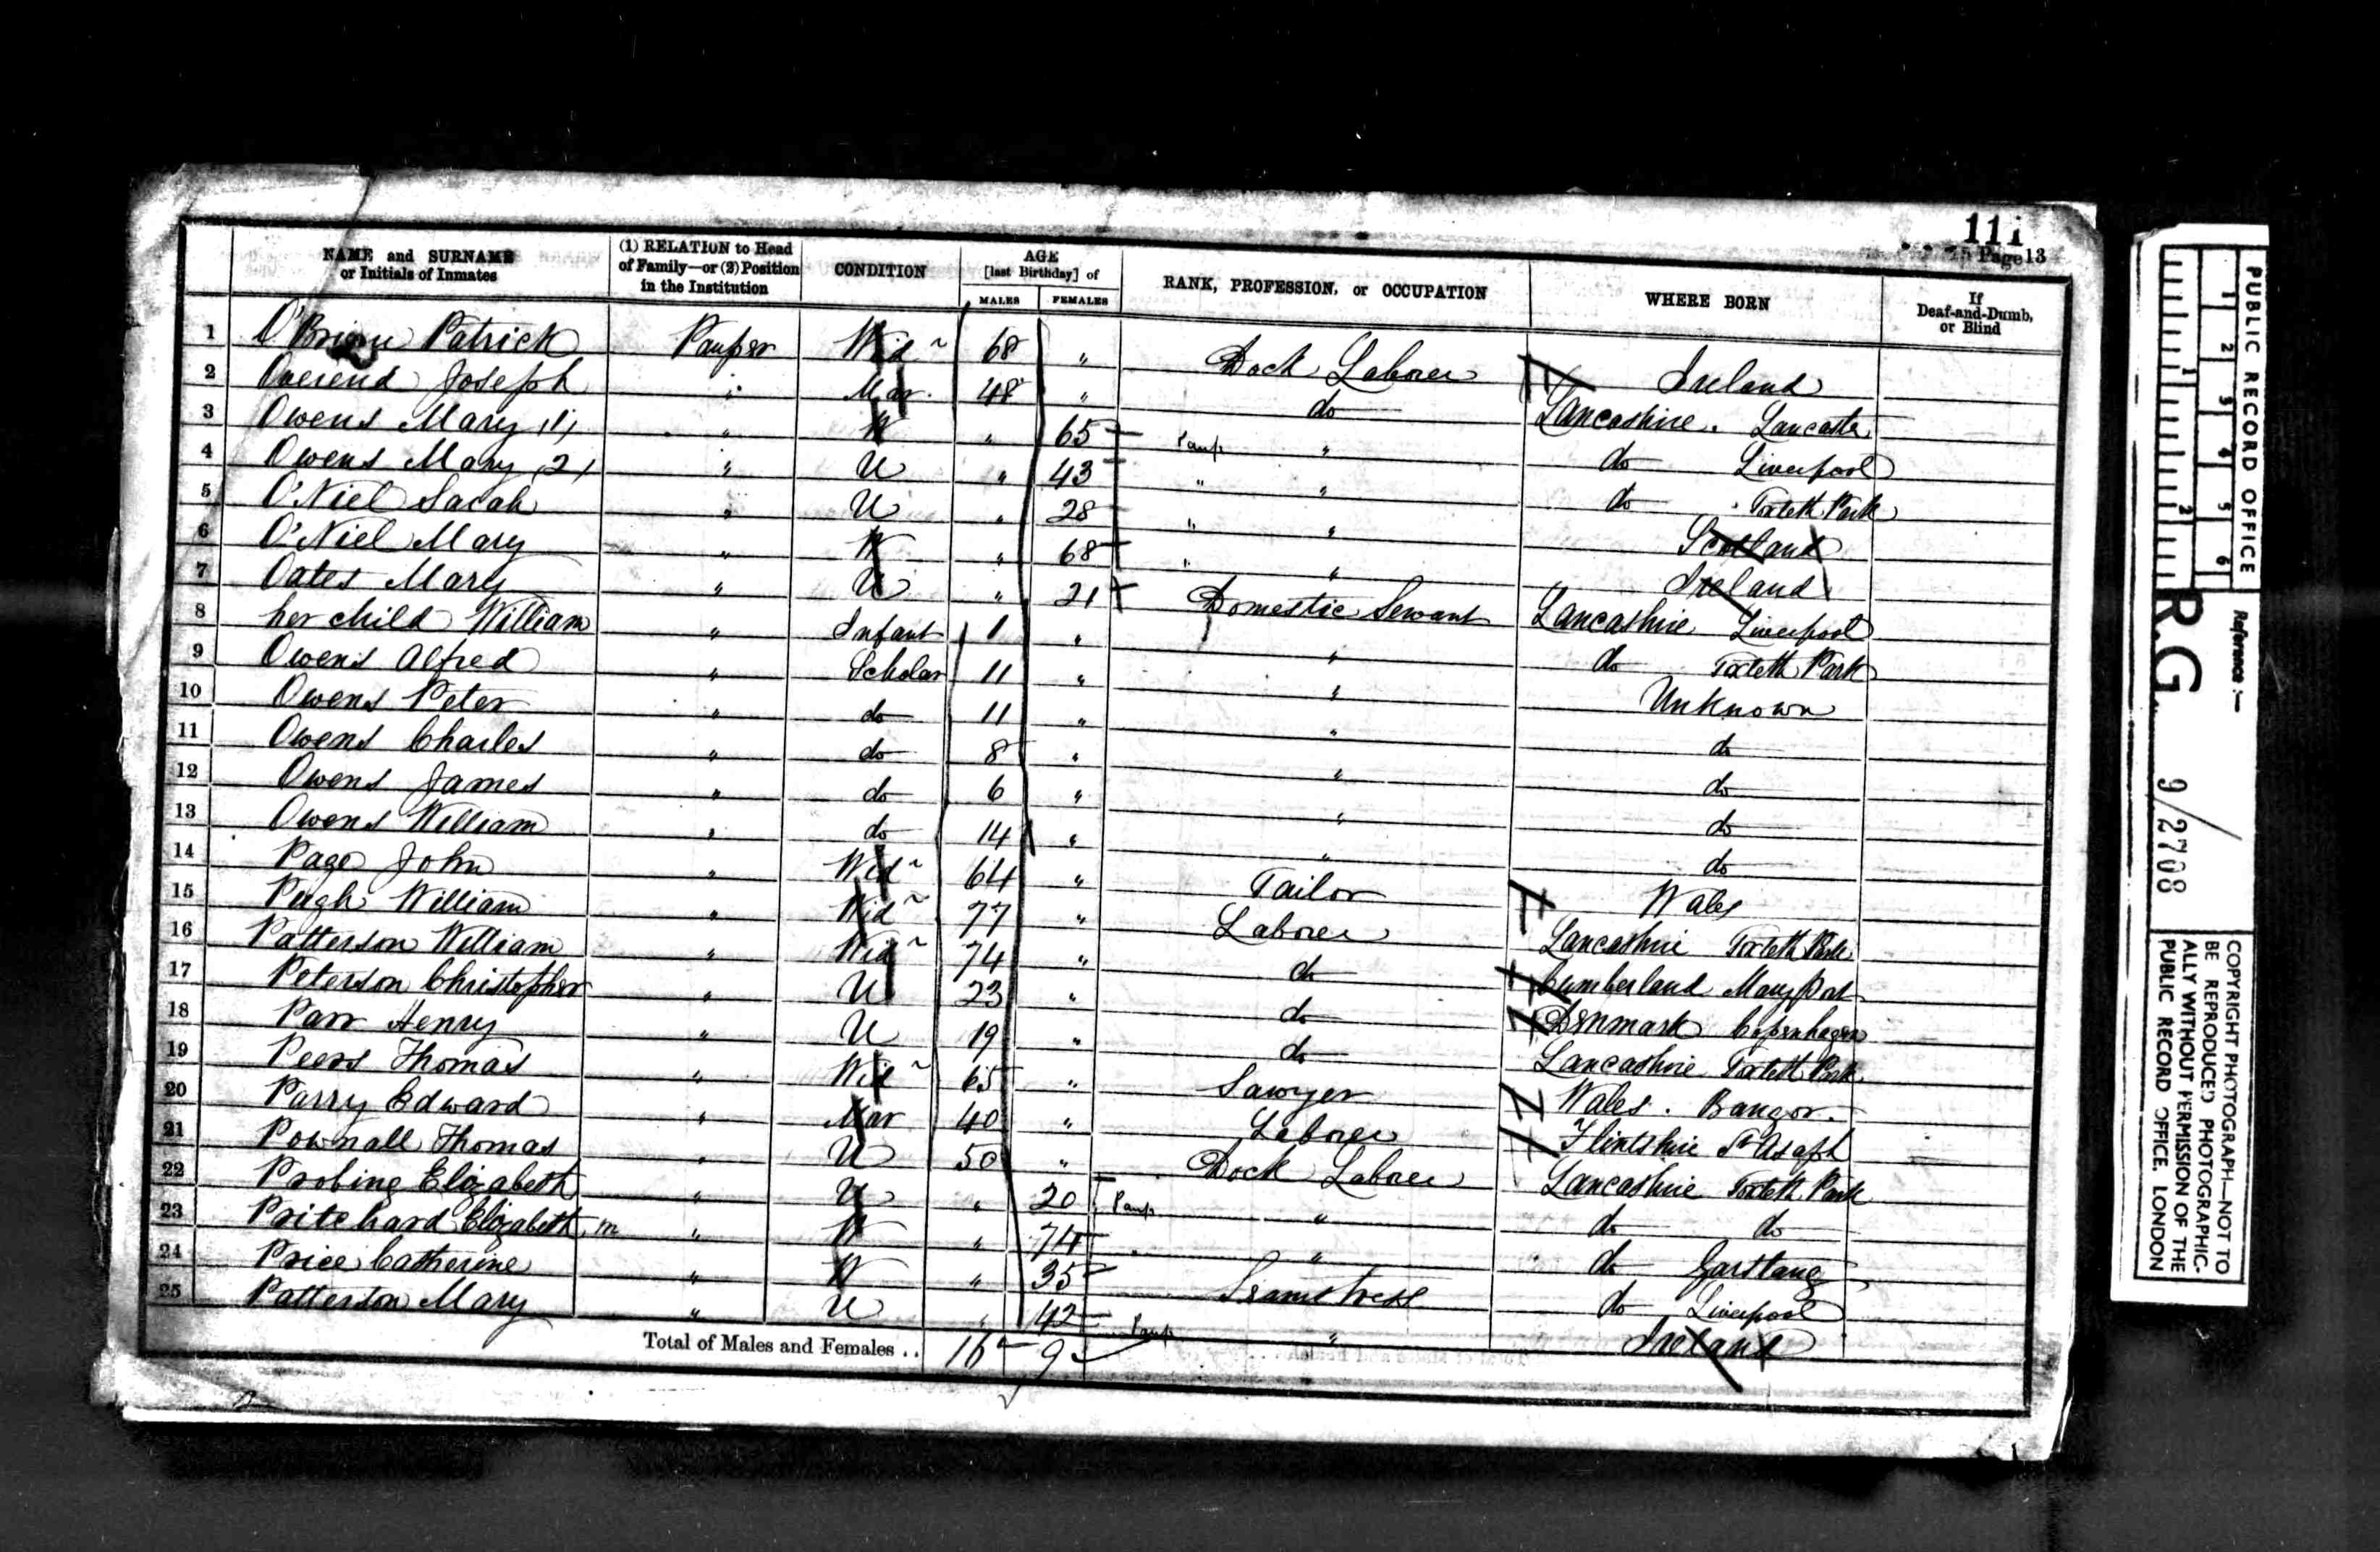 111
Page 13
NAME and SURNAME or Initials of Inmates | (1) RELATION to Head of Family—or (2) Position in the Institution | CONDITION | AGE [last Birthday] of MALES FEMALES | RANK, PROFESSION, or OCCUPATION | WHERE BORN | If Deaf-and-Dumb, or Blind
1 O'Brien Patrick Pauper Wid 68 " Dock Laborer Ireland
2 Overend Joseph " Mar. 48 " do Lancashire. Lancaster
3 Owens Mary (1) " W " 65 Paup " do Liverpool
4 Owens Mary (2) " U " 43 " " do Toxteth Park
5 O'Niel Sarah " U " 28 " " Scotland
6 O'Niel Mary " W " 68 " " Ireland
7 Oates Mary " U " 21 Domestic Servant Lancashire Liverpool
8 her child William " Infant 1 " " do Toxteth Park
9 Owens Alfred " Scholar 11 " " Unknown
10 Owens Peter " do 11 " " do
11 Owens Charles " do 8 " " do
12 Owens James " do 6 " " do
13 Owens William " do 14 " " do
14 Page John " Wid 64 " Tailor Wales
15 Pugh William " Wid 77 " Laborer Lancashire Toxteth Park
16 Patterson William " Wid 74 " do Cumberland Mary Port
17 Peterson Christopher " U 23 " do Denmark Copenhagen
18 Parr Henry " U 19 " do Lancashire Toxteth Park
19 Peers Thomas " Wid 65 " Sawyer Wales. Bangor.
20 Parry Edward " Mar 40 " Laborer Flintshire St Asaph
21 Pownall Thomas " U 50 " Dock Laborer Lancashire Toxteth Park
22 Probing Elizabeth " U " 20 Paup " do do
23 Pritchard Elizabeth m " W " 74 " " do Garstang
24 Price Catherine " W " 35 Seamstress do Liverpool
25 Patterson Mary " U " 42 Paup " Ireland
Total of Males and Females .. 16 9
PUBLIC RECORD OFFICE
1 2 3 4 5 6
1 2
Reference :—
R.G. 9/2708
COPYRIGHT PHOTOGRAPH—NOT TO
BE REPRODUCED PHOTOGRAPHIC-
ALLY WITHOUT PERMISSION OF THE
PUBLIC RECORD OFFICE, LONDON